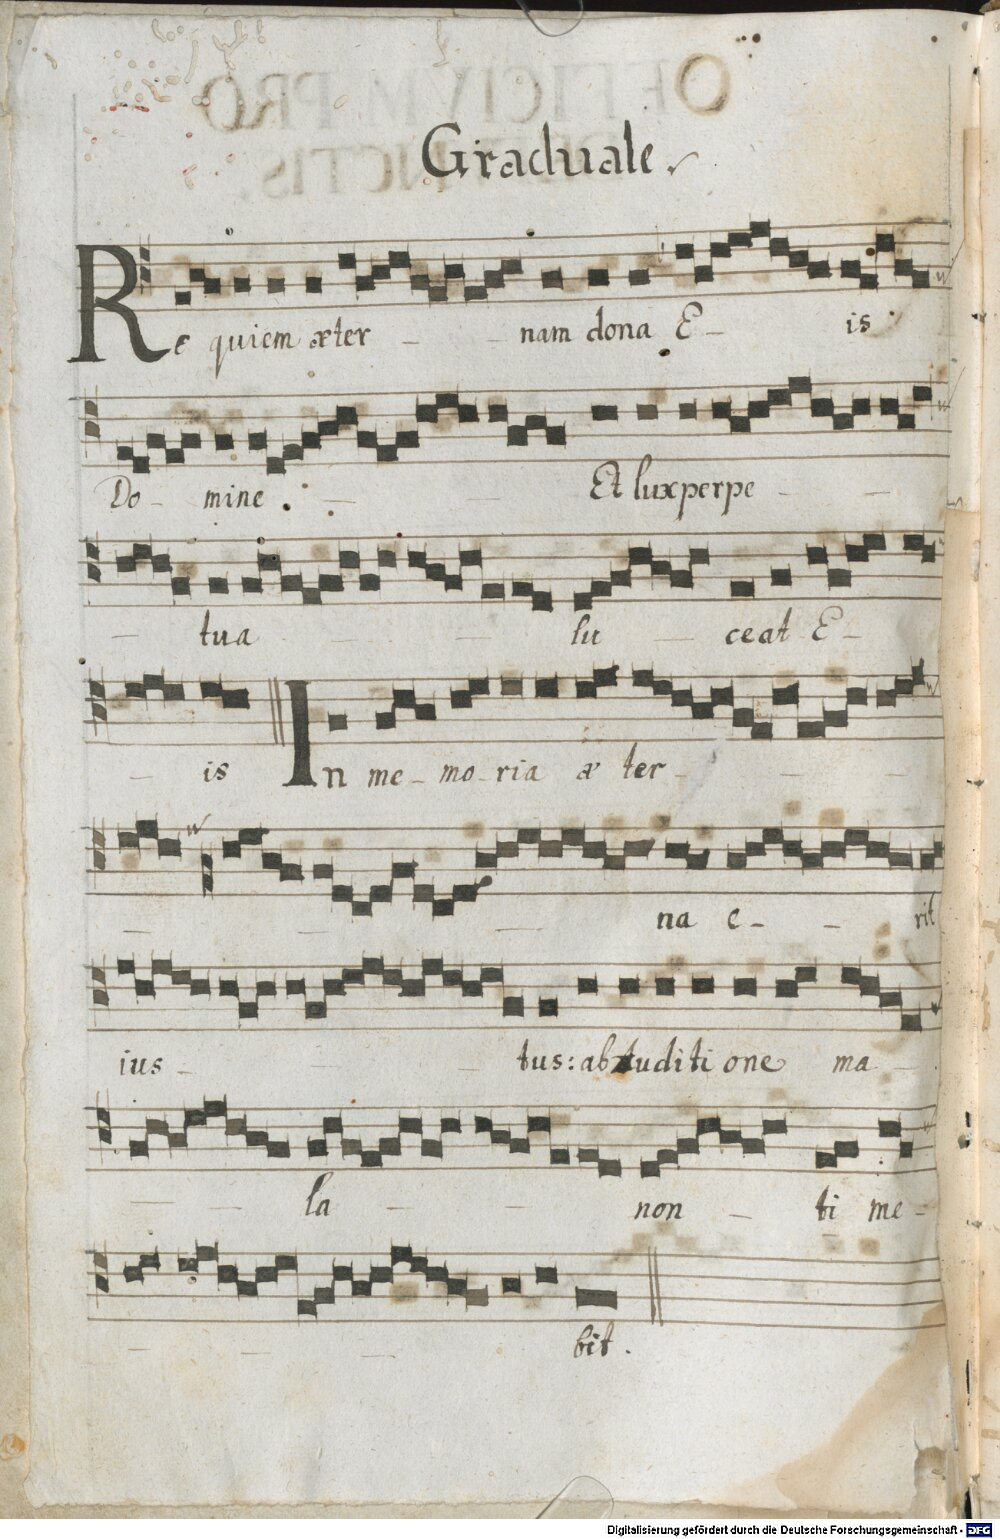 Graduale.
Re quiem æter - - nam dona E - is
Do - mine. - - Et lux perpe - -
- tua - - lu - ceat E -
- is In me - mo - ria æ ter - - -
- - - na e - - rit
ius - - - tus: ab auditi one ma -
- - la - - non - ti me -
- - - bit.
Digitalisierung gefördert durch die Deutsche Forschungsgemeinschaft - DFG